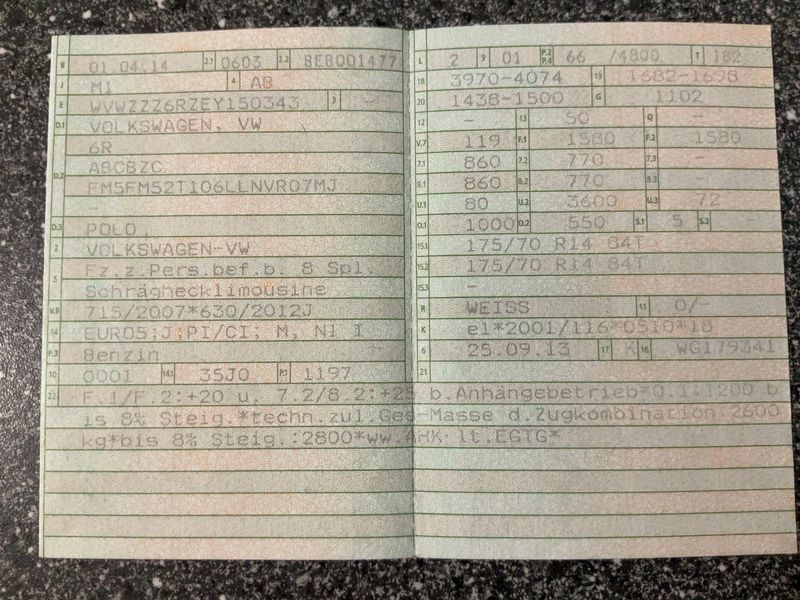 B 01.04.14 2.1 0603 2.2 8E8001477
J M1 4 AB
E WVWZZZ6RZEY150343 3 -
D.1 VOLKSWAGEN, VW
6R
D.2 ABCBZC
FM5FM52T106LLNVR07MJ
-
D.3 POLO
2 VOLKSWAGEN-VW
5 Fz.z.Pers.bef.b. 8 Spl.
Schräghecklimousine
V.9 715/2007*630/2012J
14 EURO5;J;PI/CI; M, N1 I
P.3 Benzin
10 0001 14.1 35J0 P.1 1197
L 2 9 01 P.2 P.4 66 /4800 T 182
18 3970-4074 19 1682-1698
20 1438-1500 G 1102
12 - 13 50 Q -
V.7 119 F.1 1580 F.2 1580
7.1 860 7.2 770 7.3 -
8.1 860 8.2 770 8.3 -
U.1 80 U.2 3600 U.3 72
O.1 1000 O.2 550 S.1 5 S.2 -
15.1 175/70 R14 84T
15.2 175/70 R14 84T
15.3 -
R WEISS 11 0/-
K e1*2001/116*0510*18
6 25.09.13 17 K 16 WG179341
21
22 F.1/F.2:+20 u. 7.2/8.2:+25 b.Anhängebetrieb*O.1:1200 b
is 8% Steig.*techn.zul.Ges-Masse d.Zugkombination:2600
kg*bis 8% Steig.:2800*ww.AHK lt.EGTG*